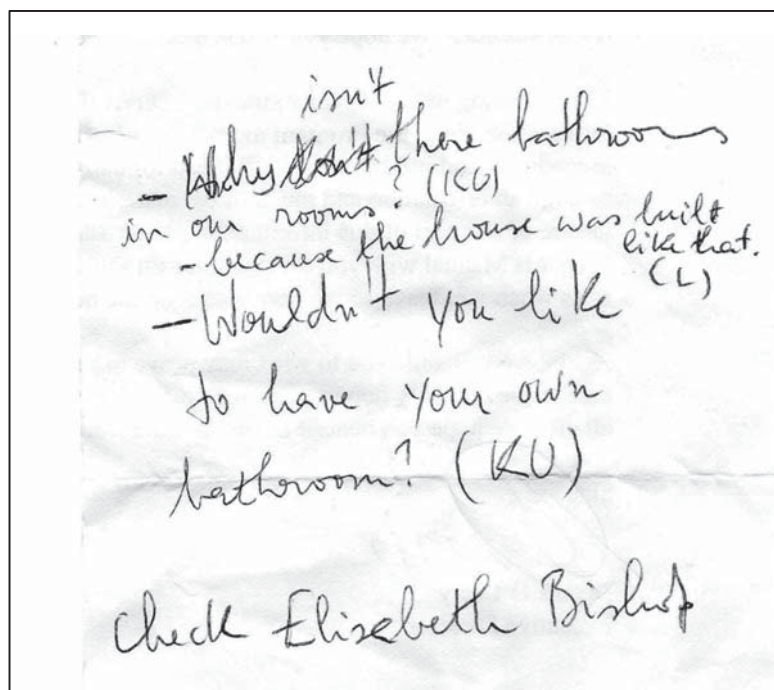 isn't
- Why don't there bathrooms
in our rooms? (KU)
- because the house was built
like that.
(L)
- Wouldn't you like
to have your own
bathroom? (KU)
Check Elisabeth Bishop